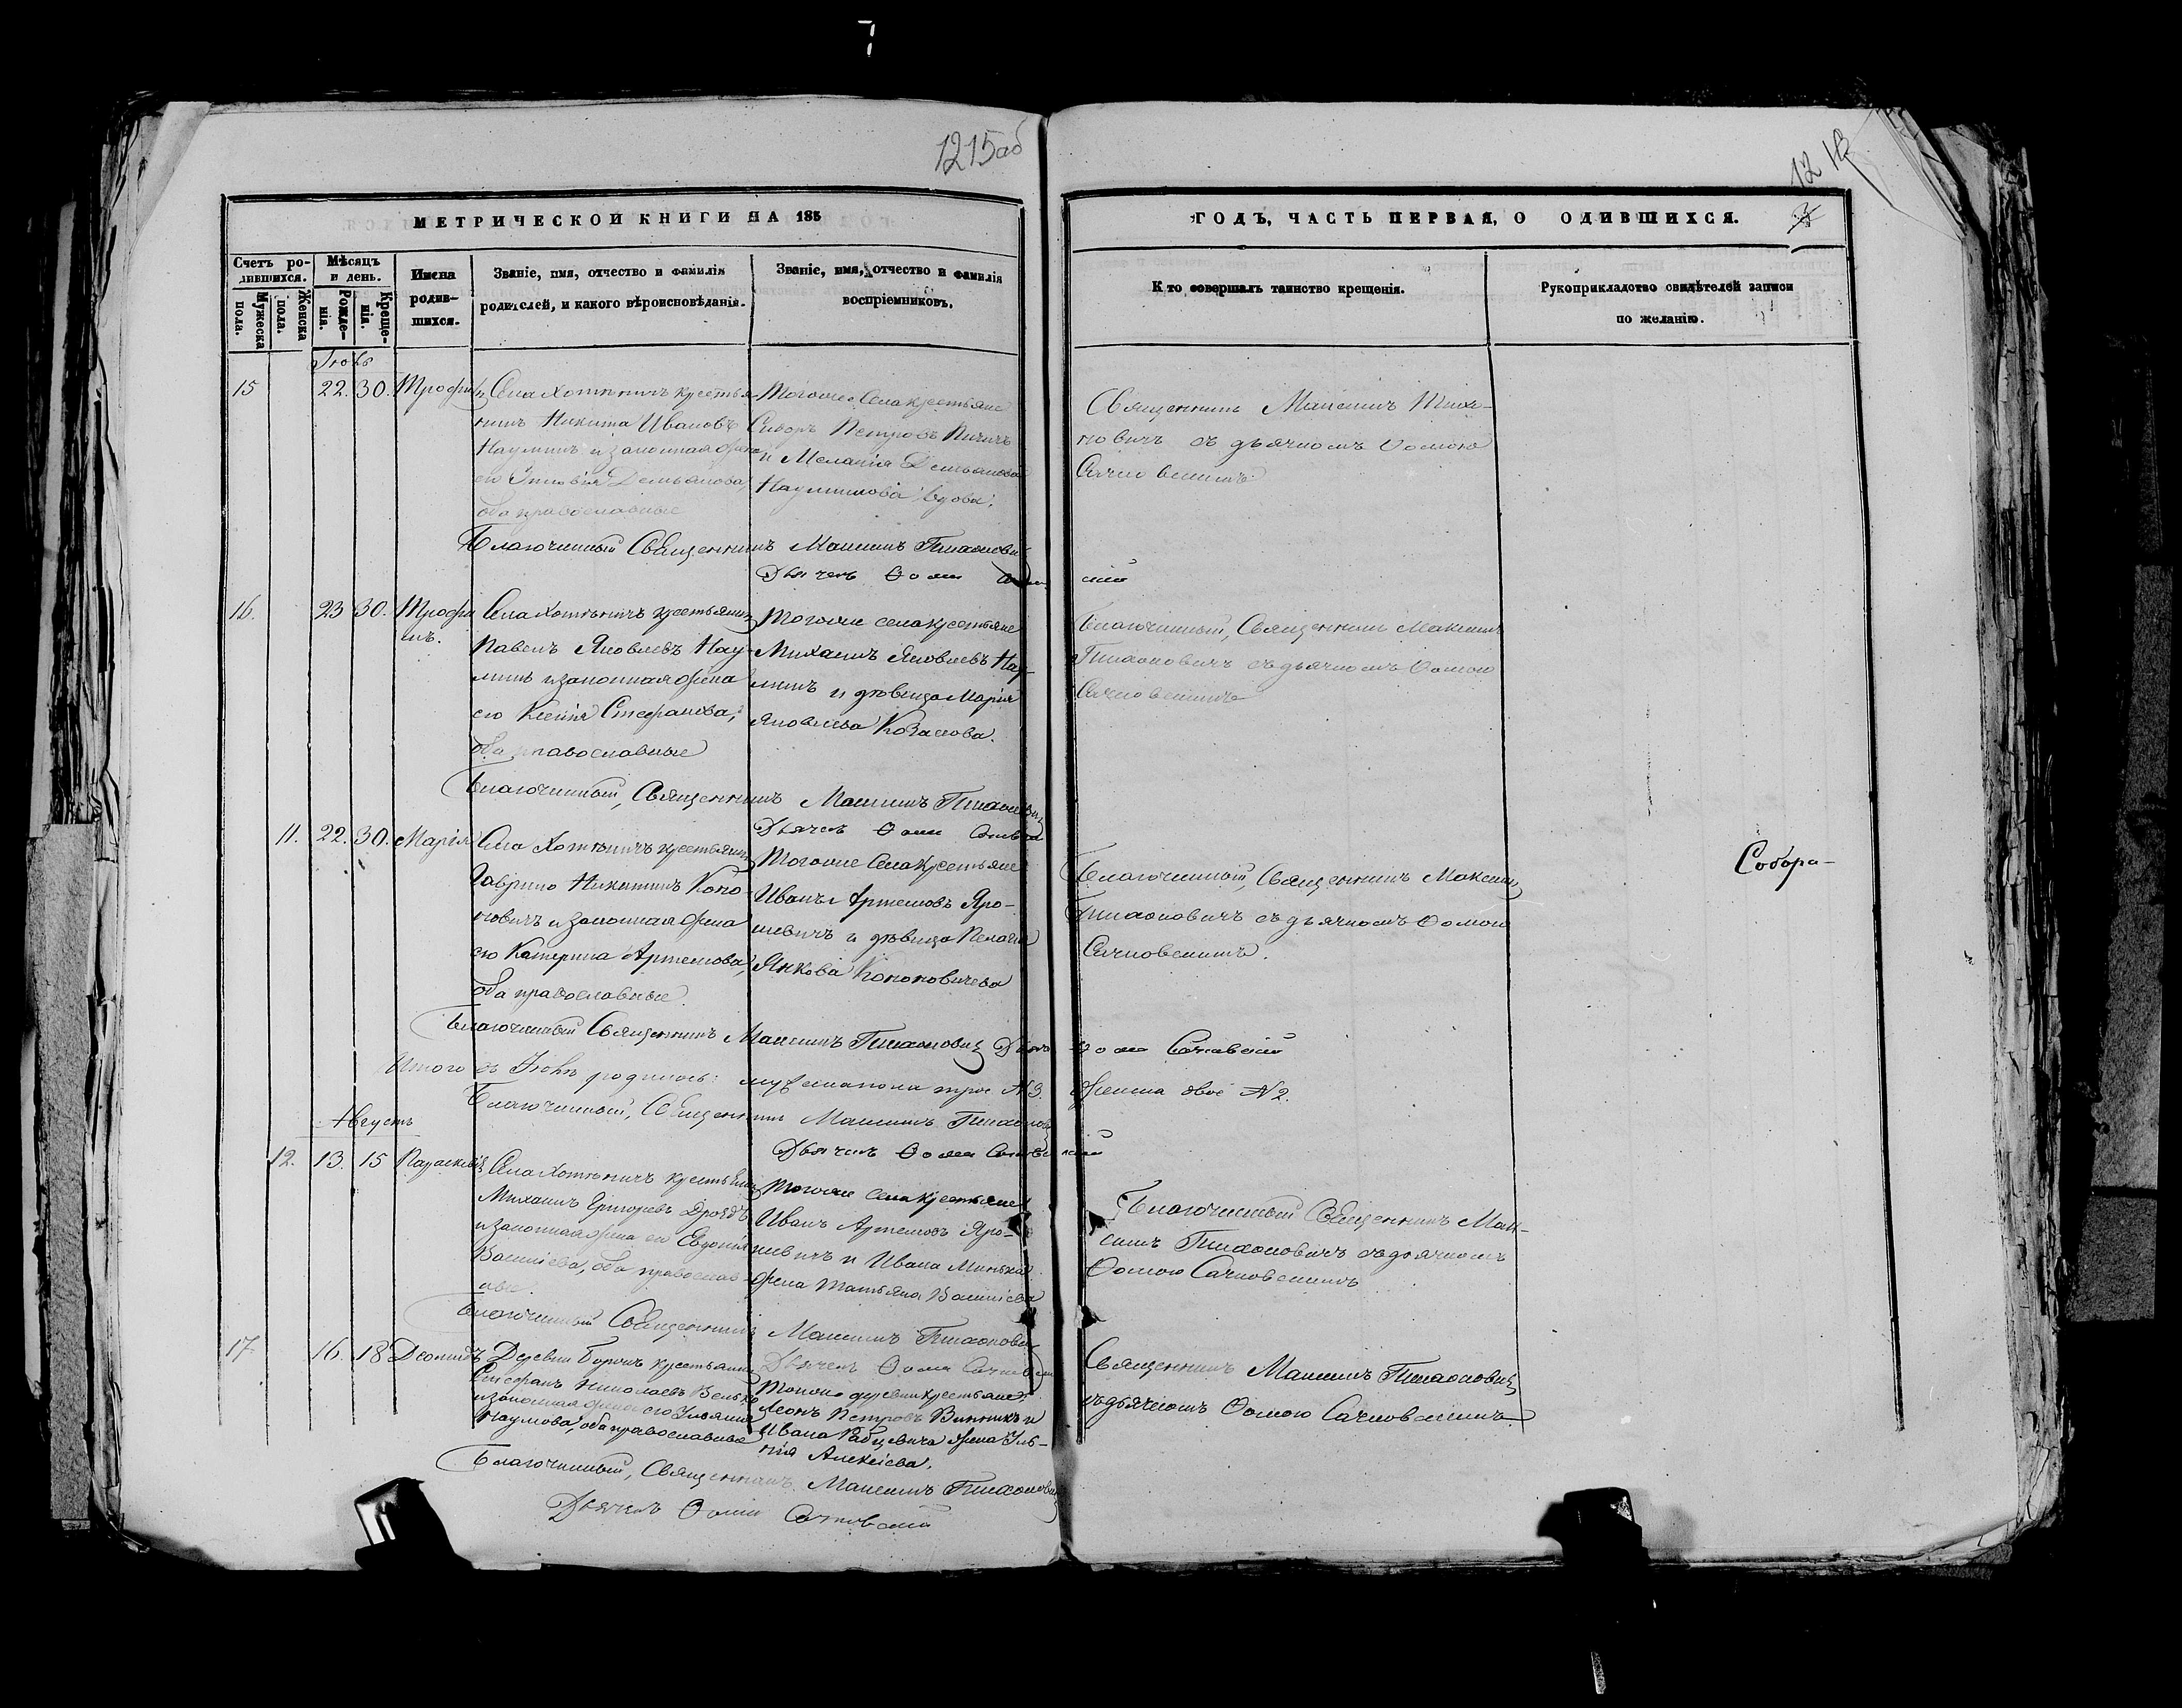 7
1215об
1213
МЕТРИЧЕСКОЙ КНИГИ НА 185
ГОДЪ, ЧАСТЬ ПЕРВАЯ, О ОДИВШИХСЯ.
3
Счетъ ро-
дившихся.
Мужеска
пола.
Женска
пола.
Мѣсяцъ
и день.
Рожде-
нія.
Креще-
нія.
Имена
родив-
шихся.
Званіе, имя, отчество и фамилія
родителей, и какого вѣроисповѣданія.
Званіе, имя, отчество и фамилія
воспріемниковъ.
Кто совершалъ таинство крещенія.
Рукоприкладство свидѣтелей записи
по желанію.
Іюль
15
22. 30.
Трофимъ
Села Хотыничъ крестья-
нинъ Никита Ивановъ
Наумикъ и законная жена
его Демьянова,
оба православные
Тогоже Села крестьяне
Сидоръ Петровъ
и Меланія Демьянова
Наумикова вдова.
Священникъ Максимъ Тихо-
новичъ съ дьячкомъ Ѳомою
Сачковскимъ
Благочинный Священникъ Максимъ Тихонович
Дьячекъ Ѳома
16.
23 30.
Трофи
мъ.
Села Хотыничъ крестьянинъ
Павелъ Яковлевъ Нау-
микъ и законная жена
его Ксенія Стефанова,
оба православные
Тогоже села крестьяне
Михаилъ Яковлевъ Нау-
микъ и дѣвица Марія
Яковлева Козакова.
Благочинный, Священникъ Максимъ
Тихоновичъ съ дьячкомъ Ѳомою
Сачковскимъ
Благочинный, Священникъ Максимъ Тихонович
Дьячекъ Ѳома
11. 22. 30.
Марія
Села Хотыничъ крестьянинъ
Гаврило Никитинъ Коно-
новичъ и законная жена
его Катерина Артемова,
оба православные.
Тогоже Села крестьяне
Иванъ Артемовъ Яро-
шевичъ и дѣвица Пелагія
Янкова Кононовичева
Благочинный, Священникъ Максимъ
Тихоновичъ съ дьячкомъ Ѳомою
Сачковскимъ.
Собора-
Благочинный Священникъ Максимъ Тихонович Дьячекъ Ѳома Сачковскій
Итого въ Іюлѣ родилось: мужеска пола трое №3. женска двое №2.
Благочинный, Священникъ Максимъ Тихонович
Дьячекъ Ѳома Сачковскій
Августъ
12. 13. 15
Параскевія
Села Хотыничъ крестьянинъ
Михаилъ Григорьевъ Дроздъ
и законная жена его Евдокія
Василіева, оба православ-
ные.
Тогоже села крестьяне
Иванъ Артемовъ Яро-
шевичъ и Ивана Минька
жена Татьяна Василіева
Благочинный Священникъ Мак-
симъ Тихоновичъ съ дьячкомъ
Ѳомою Сачковскимъ
Благочинный Священникъ Максимъ Тихонович
Дьячекъ Ѳома
17
16. 18
Леонидъ
Деревни Борокъ крестьянинъ
Стефанъ Николаевъ
и законная жена его Ульянія
Наумова, оба православные
Тойже деревни крестьяне
Леонъ Петровъ Винникъ и
Ивана Рабцевича жена Уль-
янія Алексіева.
Священникъ Максимъ Тихонович
съ дьячкомъ Ѳомою Сачковскимъ
Благочинный, Священникъ Максимъ Тихонович
Дьячекъ Ѳома Сачковскій